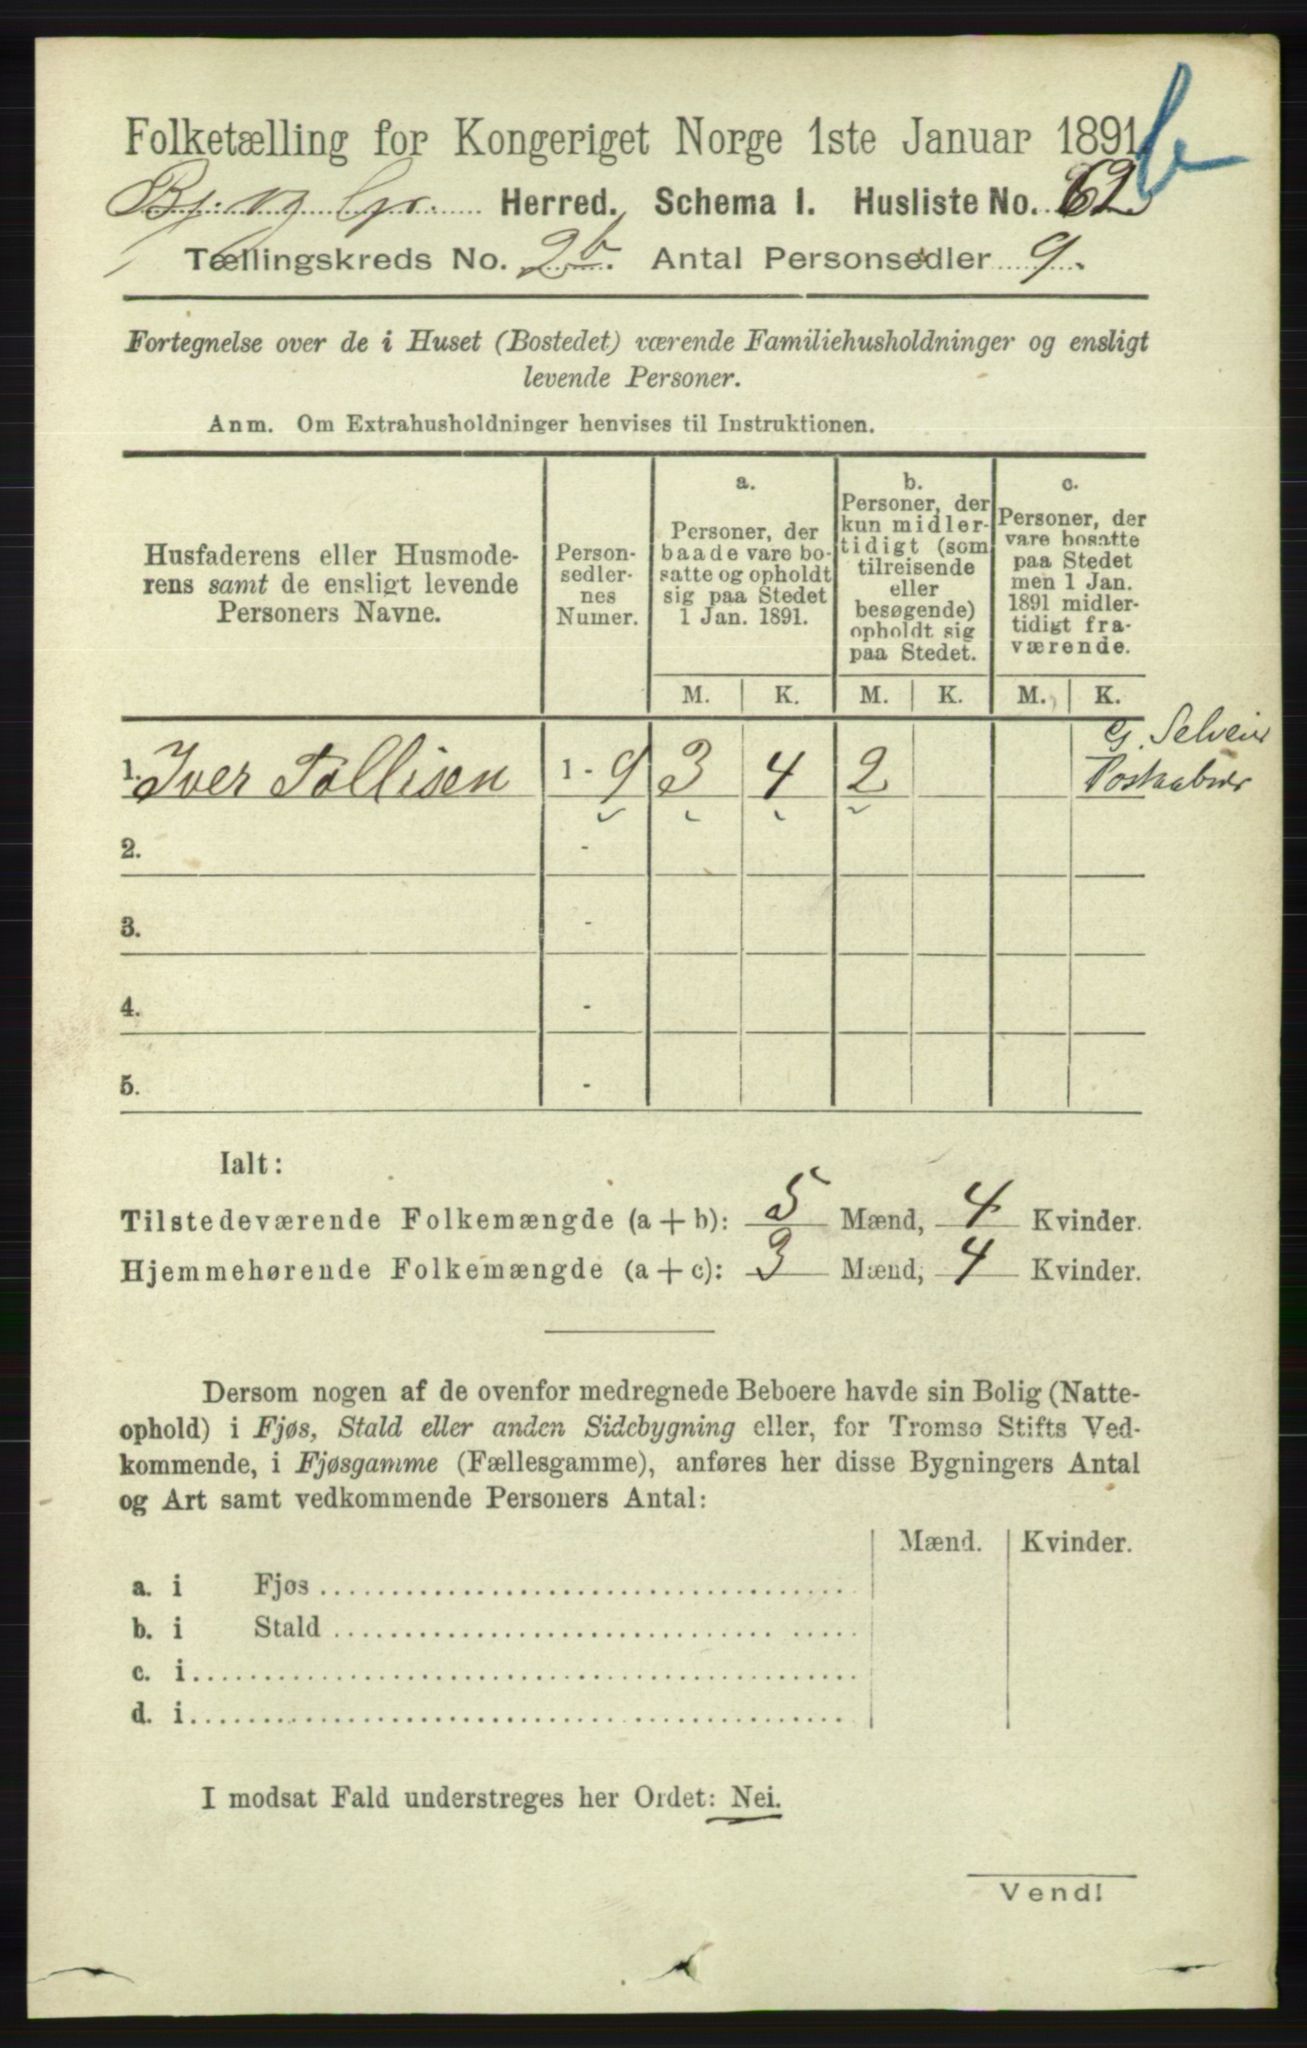 Folketælling for Kongeriget Norge 1ste Januar 1891.
Herred. Schema 1. Husliste No. 62 b
Tællingskreds No. 2b. Antal Personsedler 9.
Fortegnelse over de i Huset (Bostedet) værende Familiehusholdninger og ensligt
levende Personer.
Anm. Om Extrahusholdninger henvises til Instruktionen.
Husfaderens eller Husmode-
rens samt de ensligt levende
Personers Navne.
Person-
sedler-
nes
Numer.
a.
Personer, der
baade vare bo-
satte og opholdt
sig paa Stedet
1 Jan. 1891.
b.
Personer, der
kun midler-
tidigt (som
tilreisende
eller
besøgende)
opholdt sig
paa Stedet.
c.
Personer, der
vare bosatte
paa Stedet
men 1 Jan.
1891 midler-
tidigt fra-
værende.
M. K. M. K. M. K.
G. Selveier
1. Iver Tollisen 1 - 9 3 4 2 Postaabner
2. -
3. -
4. -
5. -
Ialt:
Tilstedeværende Folkemængde (a + b): 5 Mænd, 4 Kvinder.
Hjemmehørende Folkemængde (a + c): 3 Mænd, 4 Kvinder.
Dersom nogen af de ovenfor medregnede Beboere havde sin Bolig (Natte-
ophold) i Fjøs, Stald eller anden Sidebygning eller, for Tromsø Stifts Ved-
kommende, i Fjøsgamme (Fællesgamme), anføres her disse Bygningers Antal
og Art samt vedkommende Personers Antal:
Mænd. Kvinder.
a. i Fjøs
b. i Stald
c. i
d. i
I modsat Fald understreges her Ordet: Nei.
Vend!